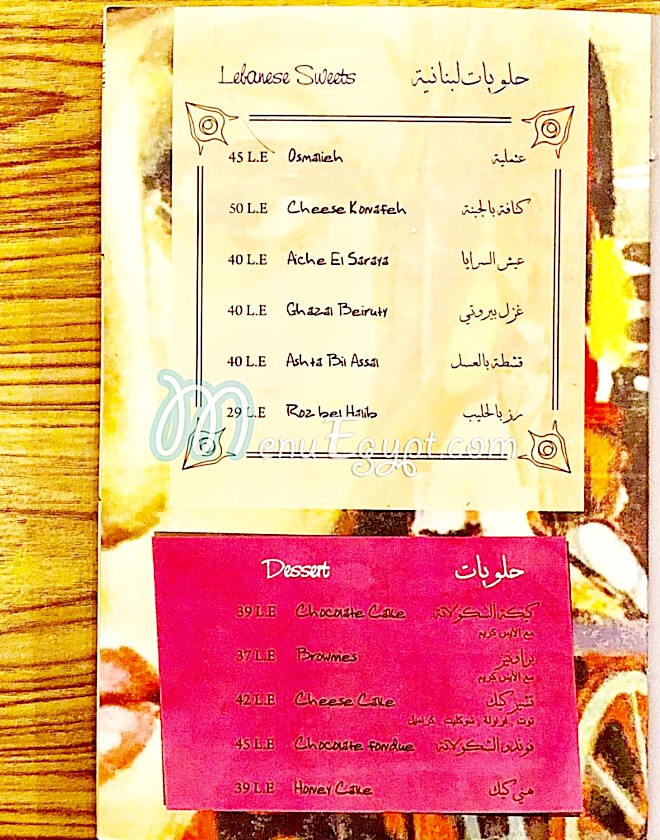 Lebanese Sweets حلويات لبنانية
45 L.E Osmalieh عثملية
50 L.E Cheese Konafeh كنافة بالجبنة
40 L.E Aiche El Saraya عيش السرايا
40 L.E Ghazal Beiruty غزل بيروتي
40 L.E Ashta Bil Assal قشطة بالعسل
29 L.E Roz bel Halib رز بالحليب
MenuEgypt.com
Dessert حلويات
39 L.E Chocolate Cake كيكة الشكولاتة
مع الآيس كريم
37 L.E Brownies براونيز
مع الآيس كريم
42 L.E Cheese Cake تشيز كيك
توت فراولة شوكليت كراميل
45 L.E Chocolate fondue فوندو الشكولاتة
39 L.E Honey Cake هني كيك